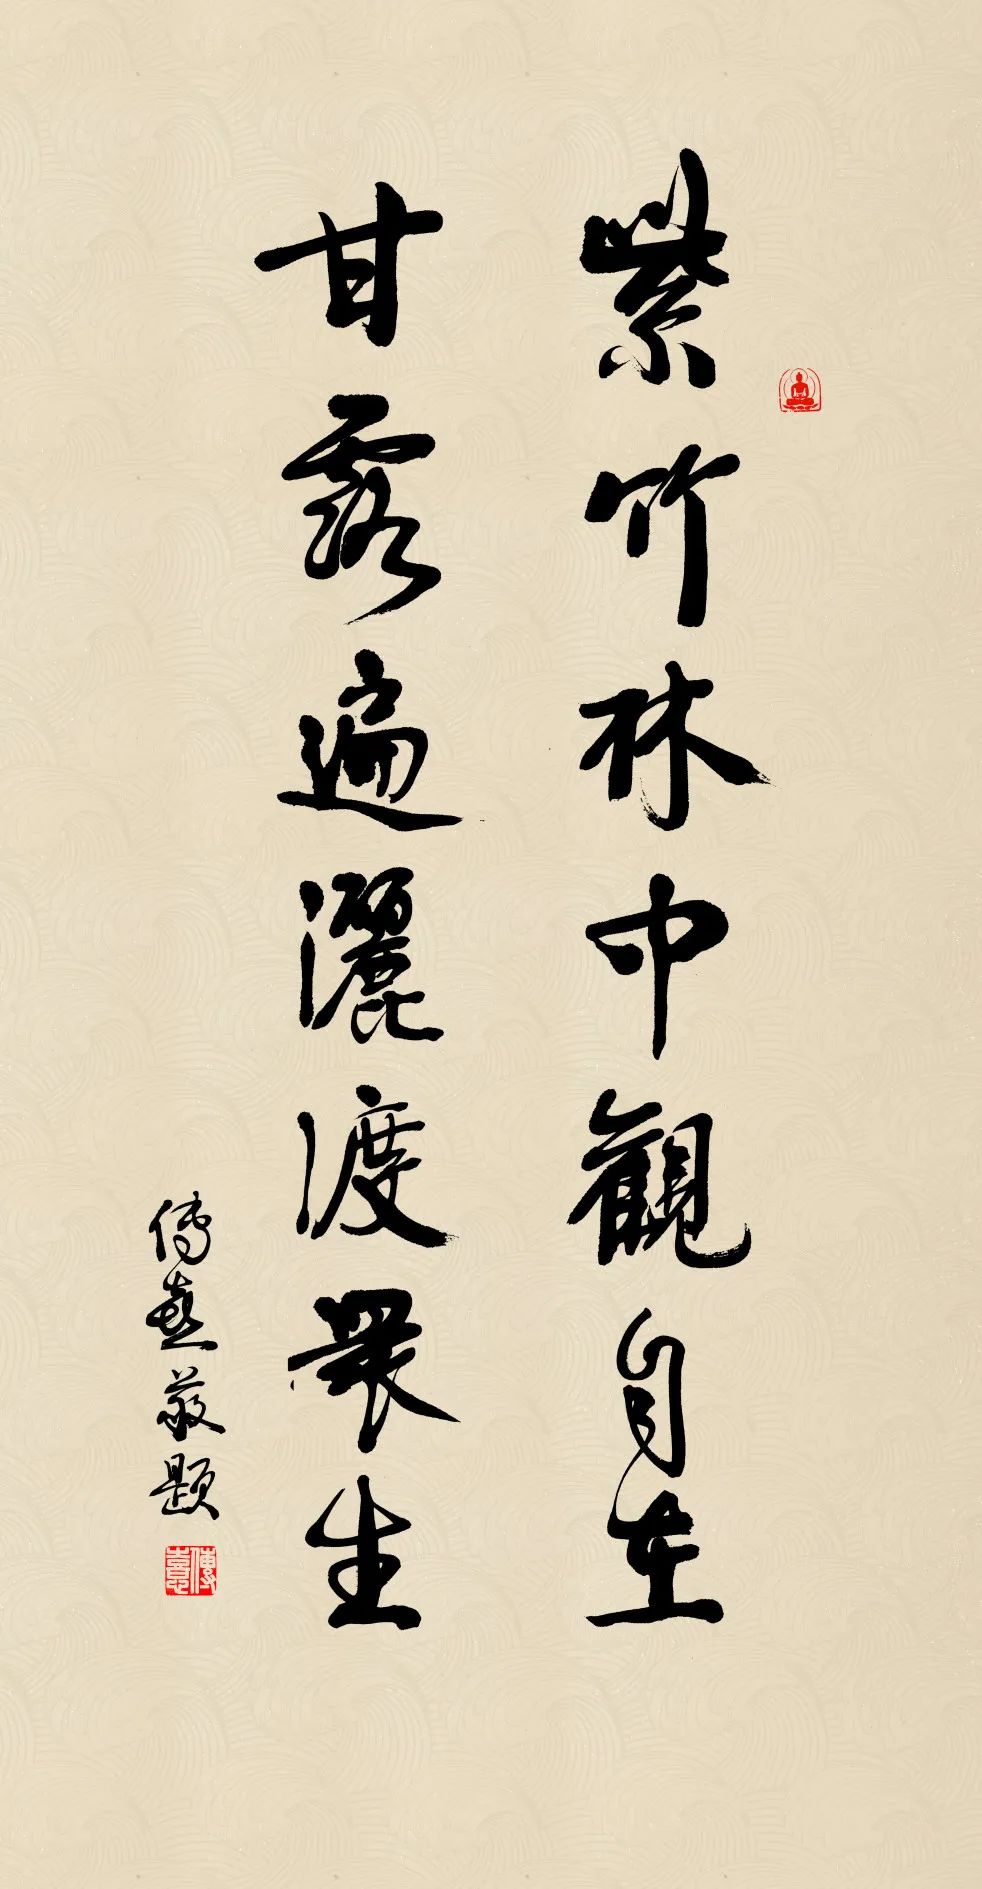 紫竹林中觀自在
甘露遍灑渡眾生
傳憙敬題
傳憙